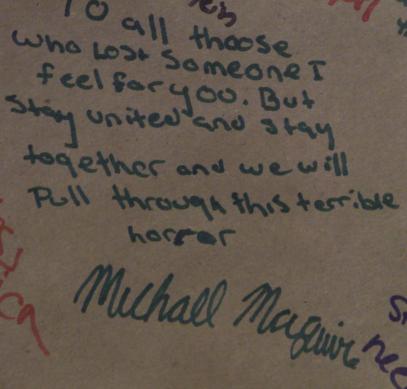 To all thoose
who lost someone I
feel for you. But
stay united and stay
together and we will
Pull through this terrible
horror
Michael Maguire